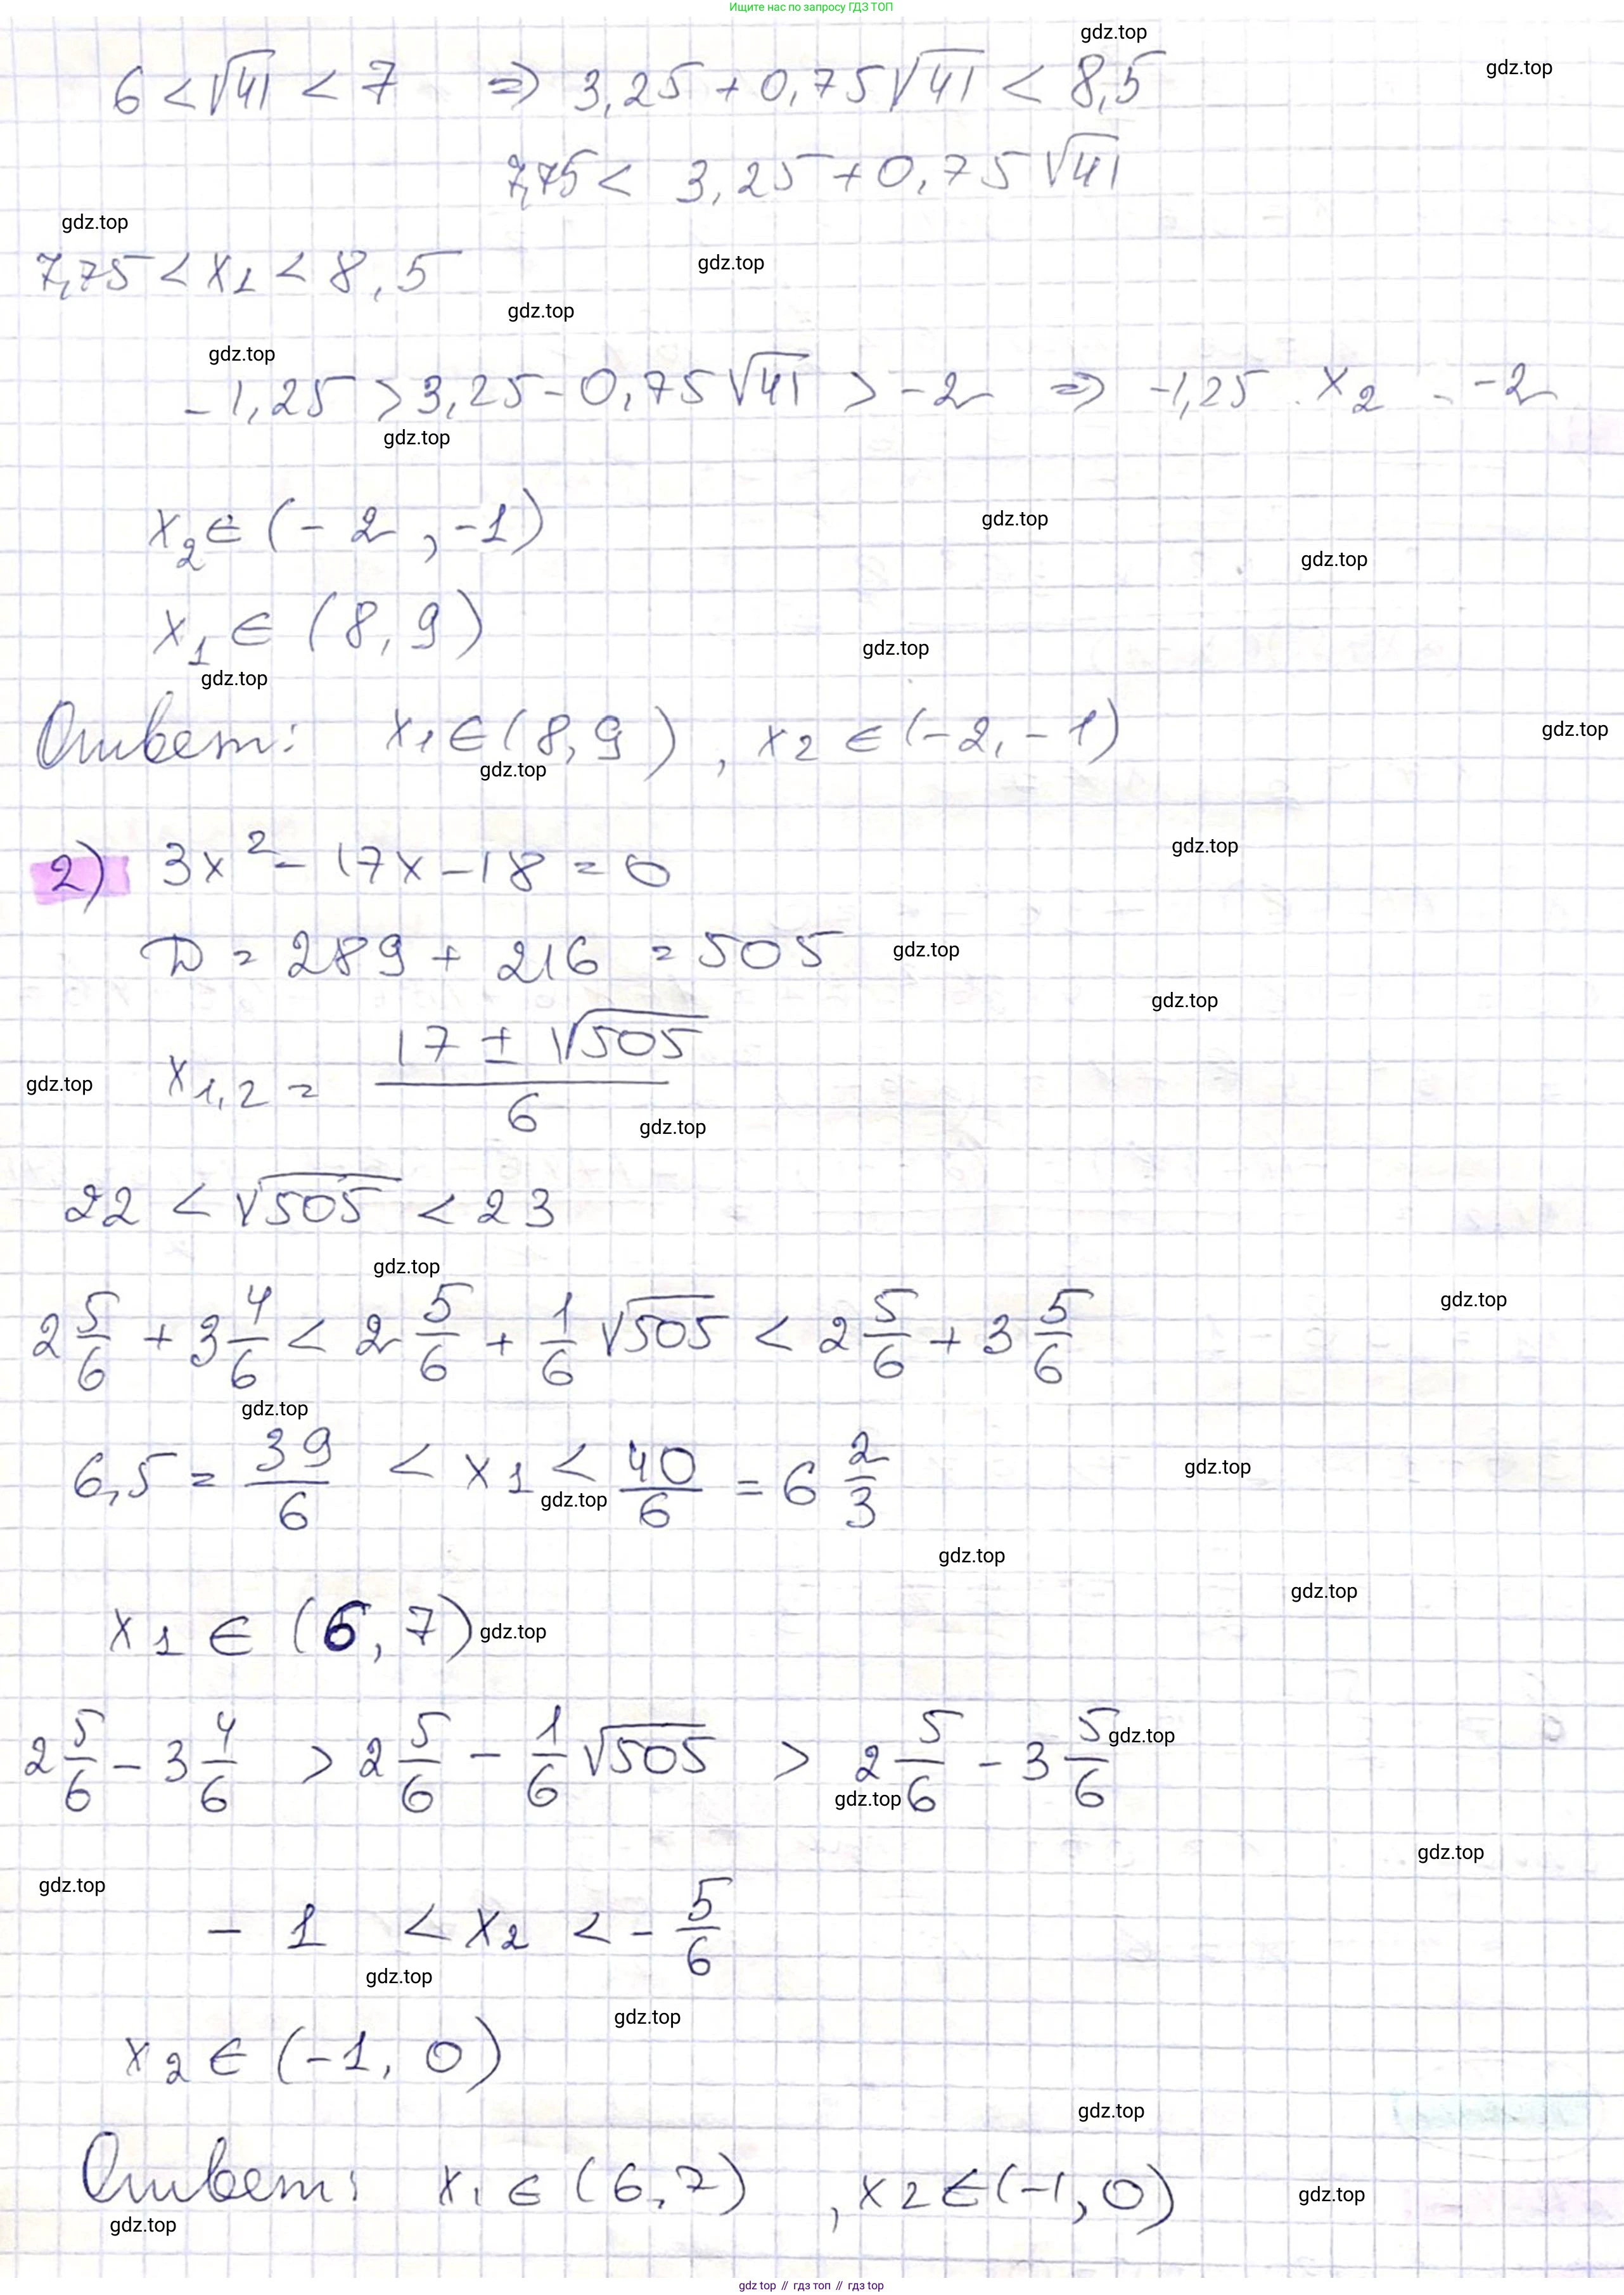 Ищите нас по запросу ГДЗ ТОП
gdz.top
gdz.top
6 < √41 < 7 => 3,25 + 0,75√41 < 8,5
7,75 < 3,25 + 0,75√41
gdz.top
7,75 < x₁ < 8,5
gdz.top
gdz.top
gdz.top
-1,25 > 3,25 - 0,75√41 > -2 => -1,25 . x₂ - -2
gdz.top
x₂ ∈ (-2, -1)
gdz.top
gdz.top
x₁ ∈ (8, 9)
gdz.top
gdz.top
Ответ: x₁ ∈ (8, 9), x₂ ∈ (-2, -1)
gdz.top
gdz.top
2) 3x² - 17x - 18 = 0
gdz.top
D = 289 + 216 = 505
gdz.top
gdz.top
x₁,₂ = (17 ± √505)/6
gdz.top
gdz.top
22 < √505 < 23
gdz.top
2 5/6 + 3 4/6 < 2 5/6 + 1/6 √505 < 2 5/6 + 3 5/6
gdz.top
gdz.top
6,5 = 39/6 < x₁ < 40/6 = 6 2/3
gdz.top
gdz.top
gdz.top
gdz.top
x₁ ∈ (6, 7)
gdz.top
2 5/6 - 3 4/6 > 2 5/6 - 1/6 √505 > 2 5/6 - 3 5/6
gdz.top
gdz.top
gdz.top
gdz.top
- 1 < x₂ < - 5/6
gdz.top
gdz.top
x₂ ∈ (-1, 0)
gdz.top
Ответ: x₁ ∈ (6, 7), x₂ ∈ (-1, 0)
gdz.top
gdz.top
gdz top // гдз топ // гдз top